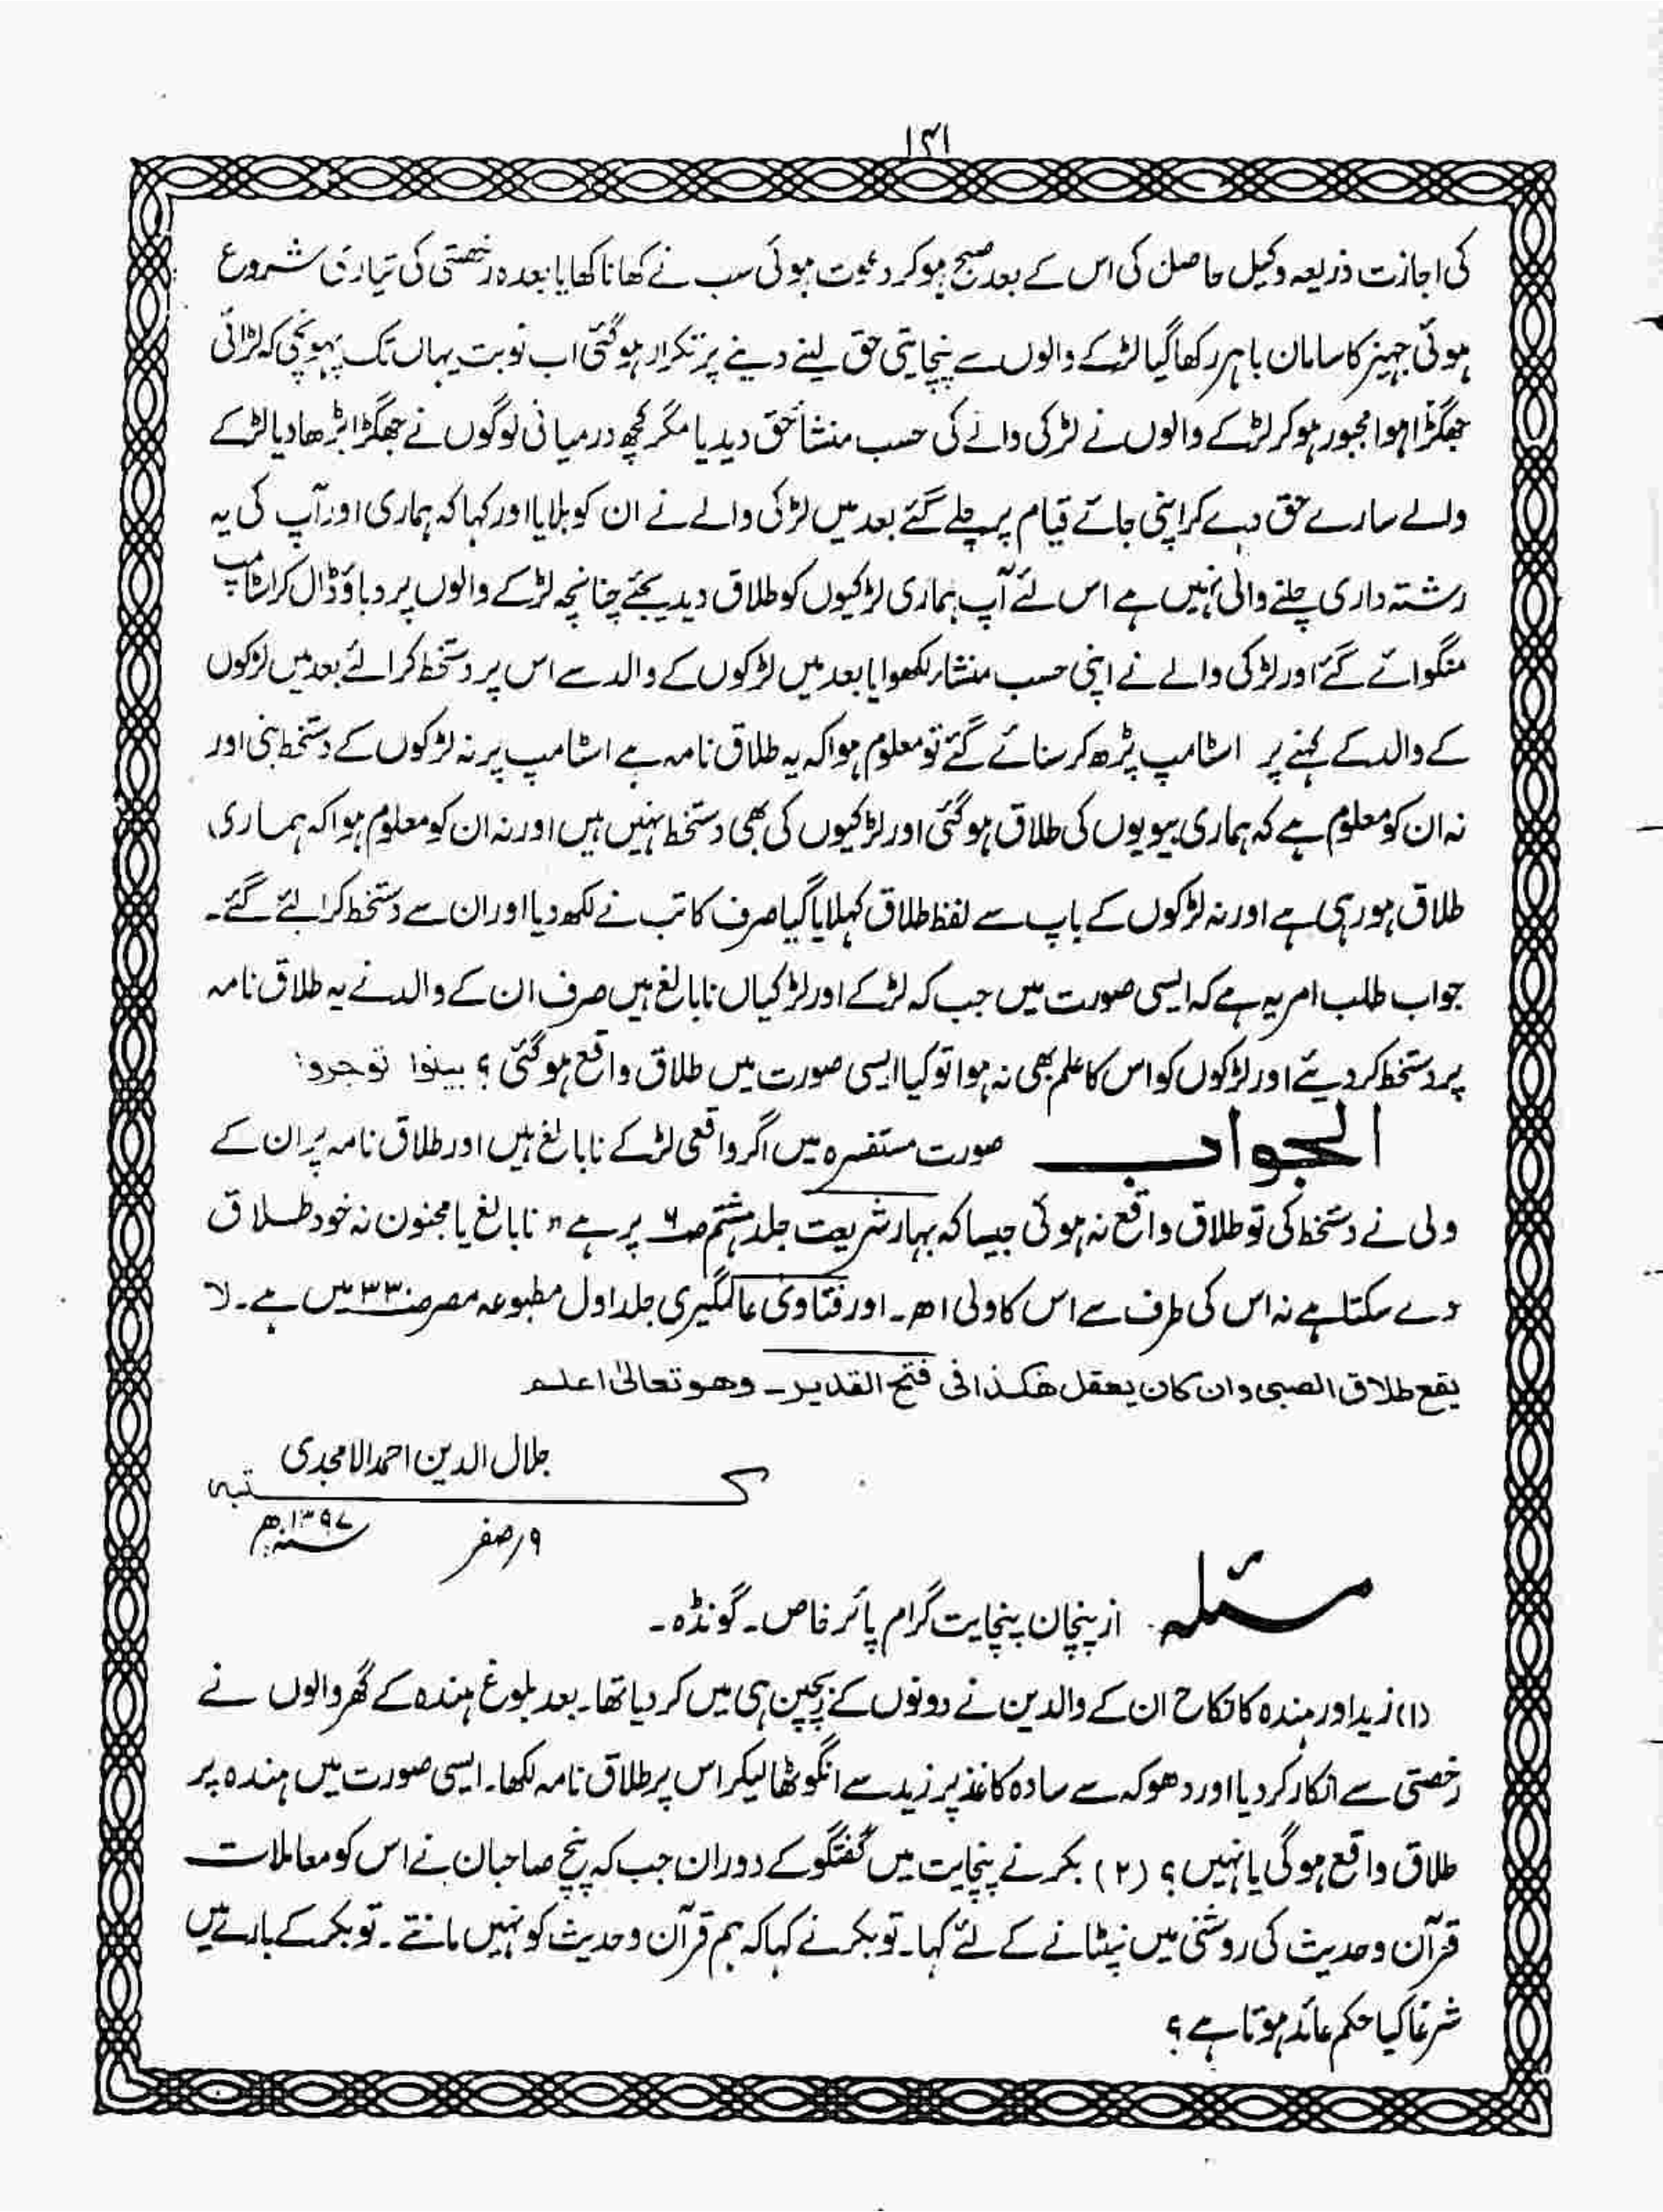 ۱۴۱
کی اجازت ذریعہ وکیل حاصل کی اس کے بعد صبح ہو کر دعوت ہوئی سب نے کھانا کھایا بعدہ رخصتی کی تیاری شروع
ہوئی جہیز کا سامان باہر رکھا گیا لڑکے والوں سے پنچایتی حق لینے دینے پر تکرار ہو گئی اب نوبت یہاں تک پہونچی کہ لڑائی
جھگڑا ہوا مجبور ہو کر لڑکے والوں نے لڑکی والے کی حسب منشأ حق دیدیا مگر کچھ درمیانی لوگوں نے جھگڑا بڑھا دیا لڑکے
والے سارے حق دے کر اپنی جائے قیام پر چلے گئے بعد میں لڑکی والے نے ان کو بلایا اور کہا کہ ہماری اور آپ کی یہ
رشتہ داری چلنے والی نہیں ہے اس لئے آپ ہماری لڑکیوں کو طلاق دیدیجئے چنانچہ لڑکے والوں پر دباؤ ڈال کر اسٹامپ
منگوائے گئے اور لڑکی والے نے اپنی حسب منشار لکھوایا بعد میں لڑکوں کے والد سے اس پر دستخط کرالئے بعد میں لڑکوں
کے والد کے کہنے پر اسٹامپ پڑھ کر سنائے گئے تو معلوم ہوا کہ یہ طلاق نامہ ہے اسٹامپ پر نہ لڑکوں کے دستخط بنی اور
نہ ان کو معلوم ہے کہ ہماری بیویوں کی طلاق ہو گئی اور لڑکیوں کی بھی دستخط نہیں ہیں اور نہ ان کو معلوم ہوا کہ ہماری
طلاق ہو رہی ہے اور نہ لڑکوں کے باپ سے لفظ طلاق کہلایا گیا صرف کاتب نے لکھ دیا اور ان سے دستخط کرالئے گئے۔
جواب طلب امر یہ ہے کہ ایسی صورت میں جب کہ لڑکے اور لڑکیاں نابالغ ہیں صرف ان کے والد نے یہ طلاق نامہ
پر دستخط کر دیئے اور لڑکوں کو اس کا علم بھی نہ ہوا تو کیا ایسی صورت میں طلاق واقع ہو گئی ؟ بینوا توجروا
الجواب صورت مستفسرہ میں اگر واقعی لڑکے نابالغ ہیں اور طلاق نامہ پر ان کے
ولی نے دستخط کی تو طلاق واقع نہ ہوئی جیسا کہ بہار شریعت جلد ہشتم ص۶ پر ہے " نابالغ یا مجنون نہ خود طلاق
دے سکتا ہے نہ اس کی طرف سے اس کا ولی اھ۔ اور فتاویٰ عالمگیری جلد اول مطبوعہ مصر ص۳۳۰ میں ہے۔ لا
یقع طلاق الصبی وان کان یعقل ھکذا فی فتح القدیر۔ وھو تعالیٰ اعلم
جلال الدین احمد الامجدی
کتبہ
۹؍صفر ۱۳۹۷ سنہ ھ
مسئلہ۔ از پنچان پنچایت گرام پائر خاص۔ گونڈہ۔
(۱) زید اور ہندہ کا نکاح ان کے والدین نے دونوں کے بچپن ہی میں کر دیا تھا۔ بعد بلوغ ہندہ کے گھر والوں نے
رخصتی سے انکار کر دیا اور دھوکہ سے سادہ کاغذ پر زید سے انگوٹھا لیکر اس پر طلاق نامہ لکھا۔ ایسی صورت میں ہندہ پر
طلاق واقع ہو گی یا نہیں ؟ (۲) بکر نے پنچایت میں گفتگو کے دوران جب کہ پنچ صاحبان نے اس کو معاملات
قرآن و حدیث کی روشنی میں نپٹانے کے لئے کہا۔ تو بکر نے کہا کہ ہم قرآن و حدیث کو نہیں مانتے۔ تو بکر کے بارے میں
شرعًا کیا حکم عائد ہوتا ہے ؟